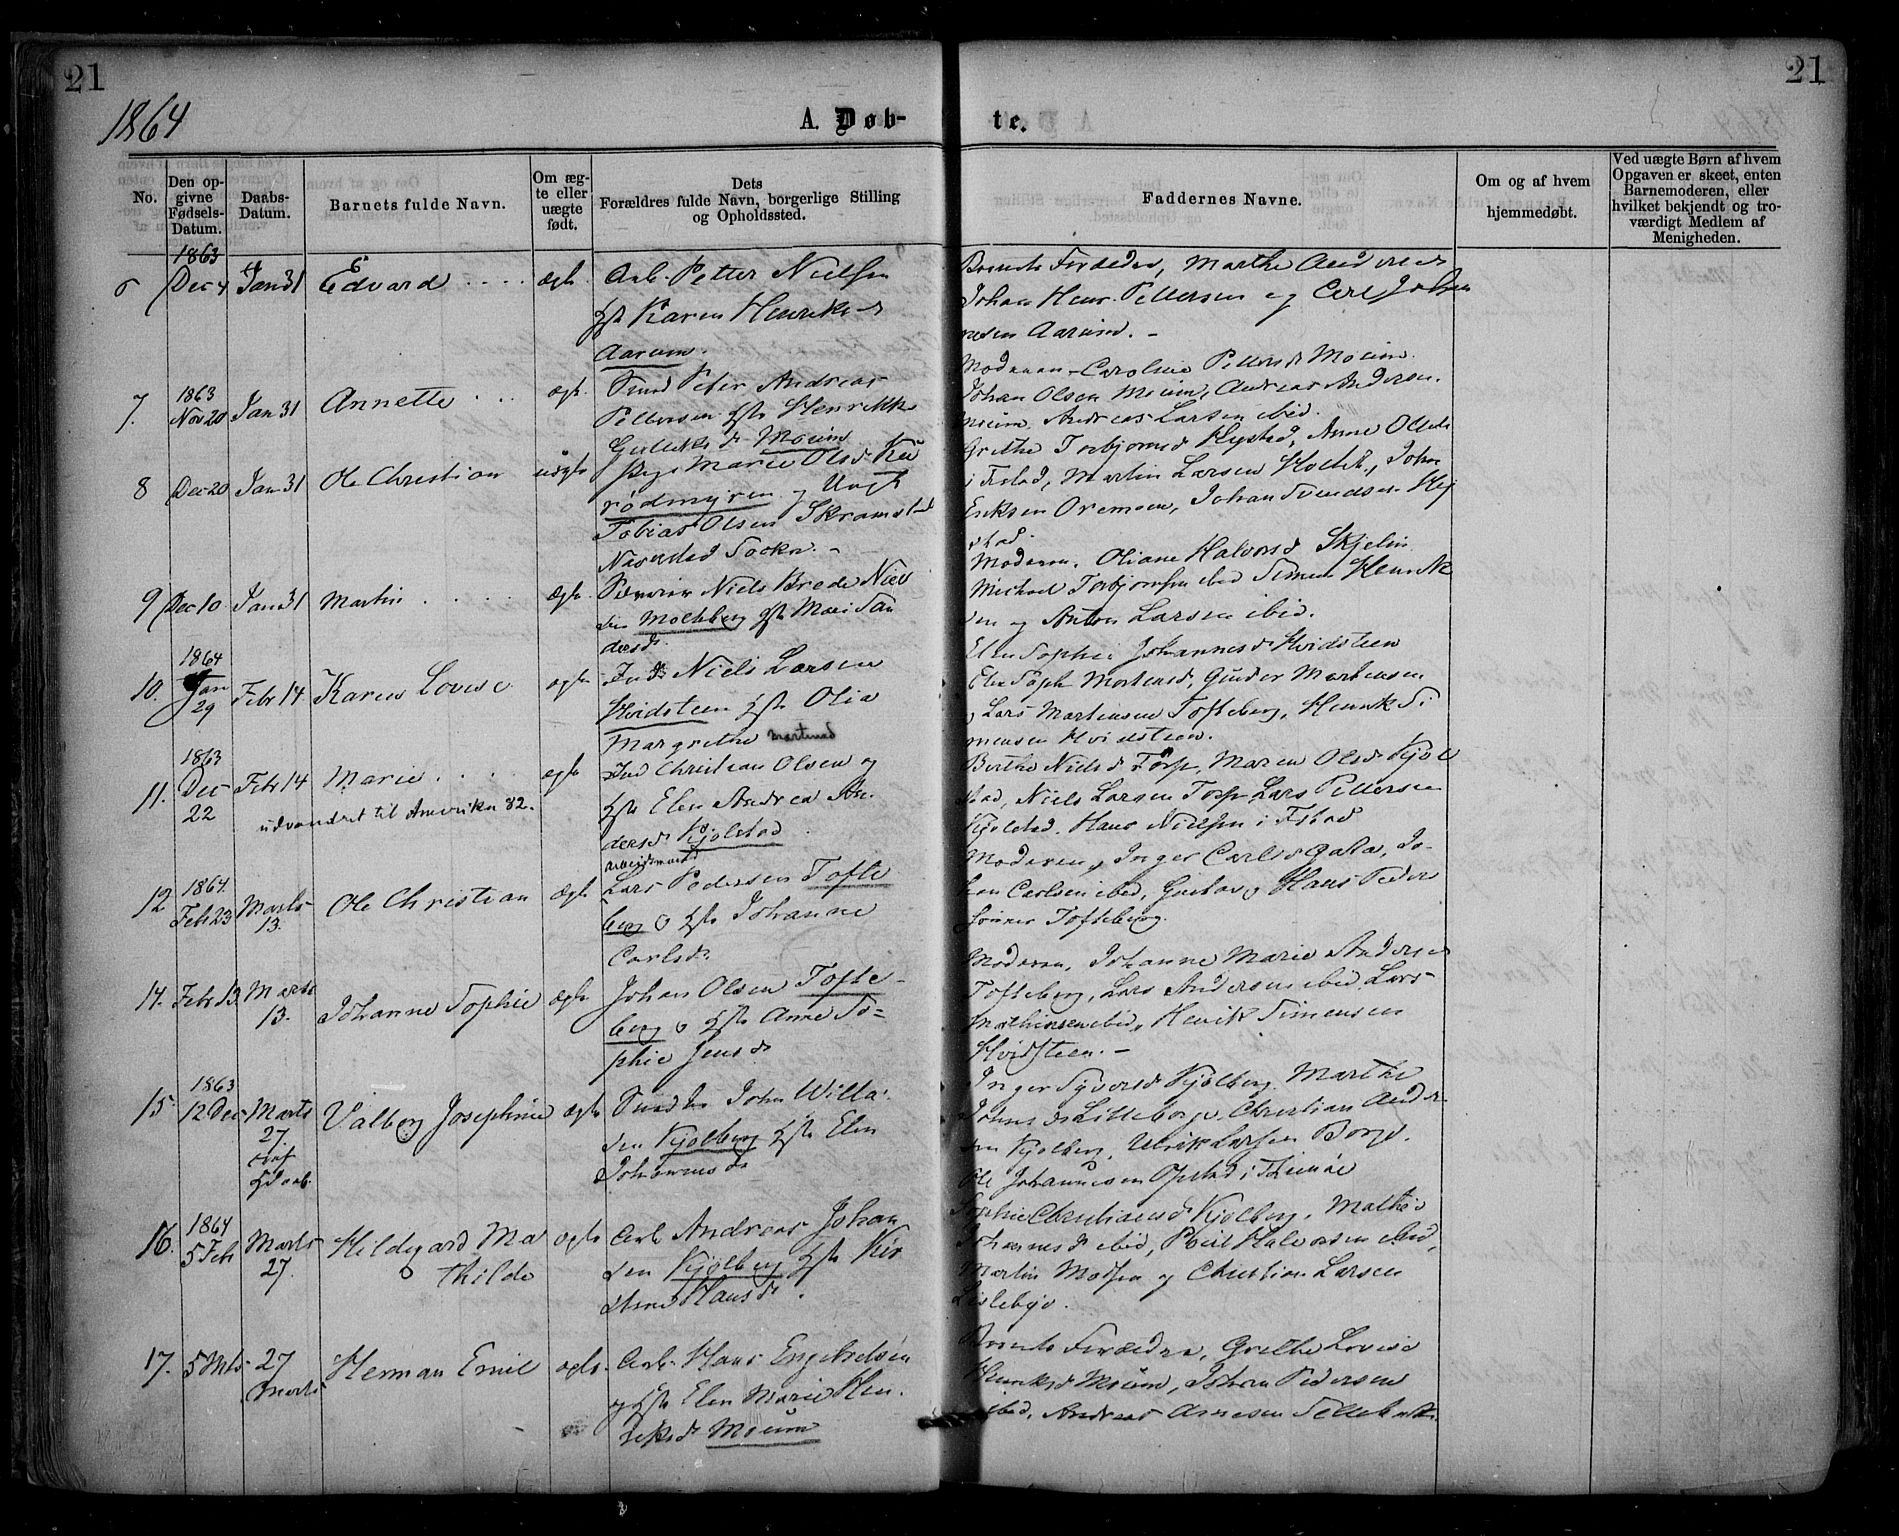 21
21
1864
A. Døb-
te.
No.
Den op-
givne
Fødsels-
Datum.
Daabs-
Datum.
Barnets fulde Navn.
Om æg-
te eller
uægte
født.
Dets
Forældres fulde Navn, borgerlige Stilling
og Opholdssted.
Faddernes Navne.
Om og af hvem
hjemmedøbt.
Ved uægte Børn af hvem
Opgaven er skeet, enten
Barnemoderen, eller
hvilket bekjendt og tro-
værdigt Medlem af
Menigheden.
1863
6 Dec 4 Jan 31 Edvard ægte Arb. Petter Nielsen
Karen Henriks
Aarum.
Marthe Anders
Johan Henr. Pettersen og Carl Johan
Aarum.
1863
7. Nov 20 Jan 31 Annette Peter Andreas
Pettersen Henrikke
Gulliksd Moum
Moderen Caroline Pettersd Moum
Johan Olsen Moum, Andreas Andersen
Moum Andreas Larsen ibid.
8 Dec 20 Jan 31 Ole Christian uægte Pige Marie Olsd
rødmyren og Ungk
Tobias Olsen Skramstad
Næsestad Sockn.
Grethe Torbjørnsd Hystad, Anne Olsd
i Istad, Martin Larsen, John
Eriksen Oremoen, Johan Svendsen Hy
stad.
9 Dec 10 Jan 31 Martin ægte Niels Brede Niel
sen Molteberg Mari San
dersd
Moderen, Oliane Halvorsd Skjelin
Michael Torbjørnsen ibid Simen Henrik
sen og Anton Larsen ibid.
1864
10. Jan 29 Febr 14 Karen Lovise ægte Ind Niels Larsen
Hvidsteen Olia
Margrethe Martinsd
Elen Sophie Johannesd Hvidsteen
Elen Soph Mortensd, Gunder Martinsen
og Lars Martinsen Tofteberg, Henrik Si
mensen Hvidsteen.
1863
11. Dec 22 Febr 14 Marie ægte Ind Christian Olsen og
udvandret til Amerika 82.
Elen Andrea An
dersd Kjølstad
Berthe Nielsd Torp, Maren Olsd Kjøl
stad, Niels Larsen Torp Lars Pettersen
Kjølstad. Hans Nielsen i Istad
1864
12 Febr 23 Marts 13. Ole Christian ægte Arbeidsmand
Lars Pedersen Tofte
berg o Johanne
Carlsd
Moderen, Inger Carlsd Gata, Jo-
han Carlsen ibid, Gustav og Hans Peder
sønner Tofteberg.
14. Febr 19 Marts 13. Johanne Sophie ægte Johan Olsen Tofte-
berg o Anne So-
phie Jensd
Moderen, Johanne Marie Andersd
Tofteberg, Lars Andersen ibid, Lars
Mathiesen ibid, Henrik Simensen
Hvidsteen.
1863
15. 12 Dec Marts 27. Valborg Josephine ægte John Willa
sen Kjølberg Elen
Johannesd
Inger Syversd Kjølberg. Marthe
Johnsd Lilleborge, Christian Ander
sen Kjølberg, Ulrik Larsen Borge.
Ole Johannesen Opstad i Thunøe
1864
16. 5 Febr Marts 27. Hildegard Ma
thilde ægte Arb Andreas Johan
sen Kjølberg Kir
stine Hansd.
Sophie Christiansd Kjølberg, Mathea
Johannesd ibid, Poul Halvorsen ibid,
Martin Madsen og Christian Larsen
Lislebye.
17. 5 Mts 27 Marts Herman Emil ægte Arb. Hans Engebretsen
og Elen Marie Hen
riksd Moum
Barnets Forældre, Grethe Lovise
Henriksd Moum, Johan Pedersen
ibid, Andreas Arnesen